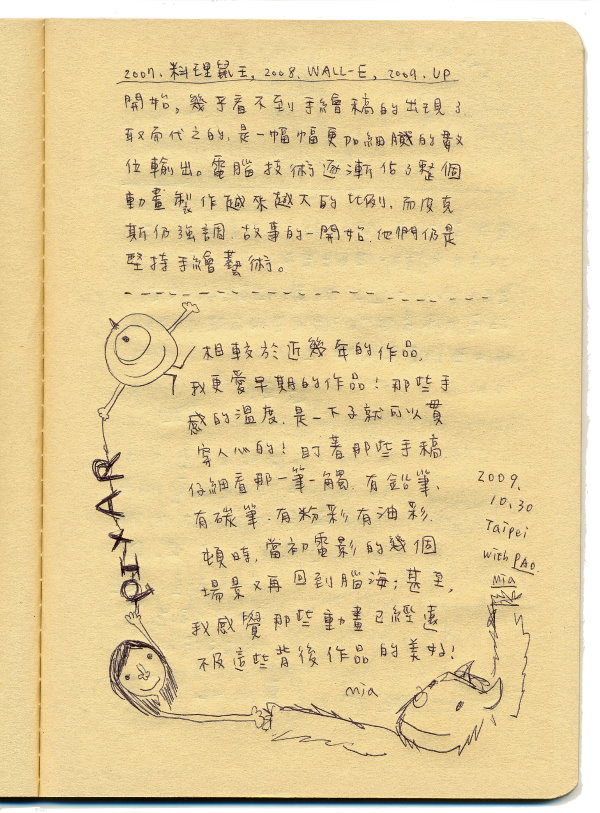 2007. 料理鼠王, 2008. WALL-E, 2009. UP
開始, 幾乎看不到手繪稿的出現了
取而代之的, 是一幅幅更加細膩的數
位輸出。電腦技術逐漸佔了整個
動畫製作越來越大的比例. 而皮克
斯仍強調. 故事的一開始. 他們仍是
堅持手繪藝術。
相較於近幾年的作品,
我更愛早期的作品! 那些手
感的溫度, 是一下子就可以貫
穿人心的! 盯著那些手稿
仔細看那一筆一觸. 有鉛筆、
有碳筆. 有粉彩有油彩.
頓時, 當初電影的幾個
場景又再回到腦海; 甚至,
我感覺那些動畫已經遠
不及這些背後作品的美好!
mia
PIXAR
2009.
10.30
Taipei
with PAO.
mia